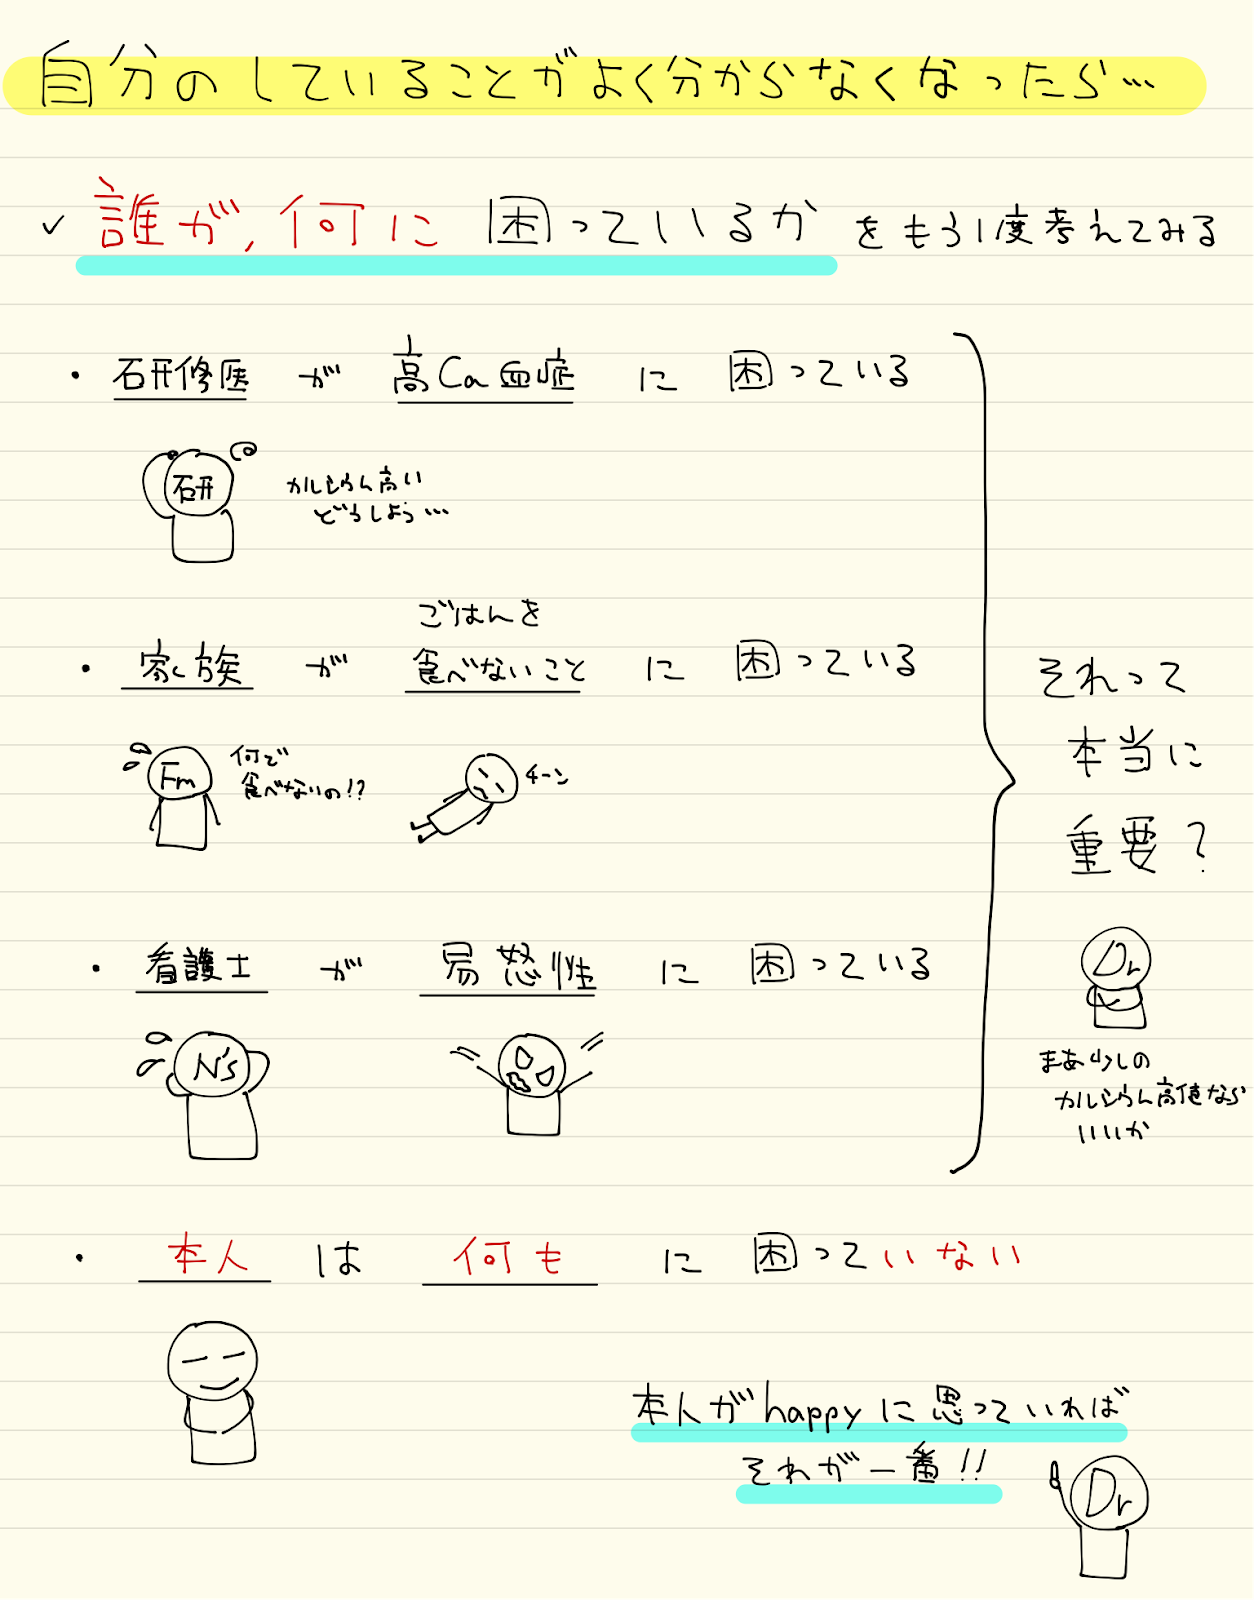 自分のしていることがよく分からなくなったら…
✓ 誰が、何に 困っているか をもう1度考えてみる
・ 研修医 が 高Ca血症 に 困っている
研
カルシウム高い
どうしよう…
・ 家族 が ごはんを
食べないこと に 困っている
Fm
何で
食べないの!?
チーン
・ 看護士 が 易怒性 に 困っている
N's
それって
本当に
重要?
Dr
まあ少しの
カルシウム高値なら
いいか
・ 本人 は 何も に 困っていない
本人がhappyに思っていれば
それが一番!!
Dr